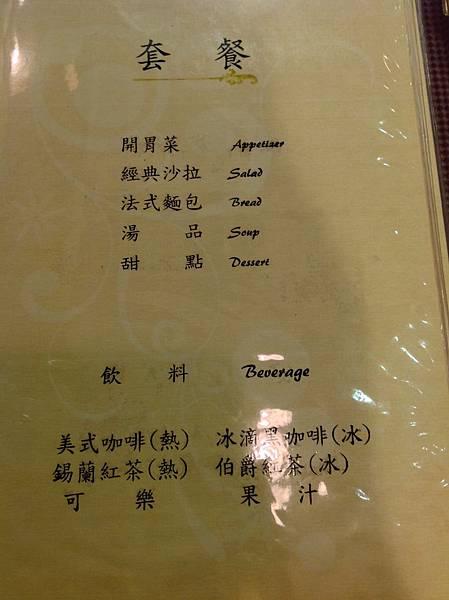 套 餐
開胃菜 Appetizer
經典沙拉 Salad
法式麵包 Bread
湯 品 Soup
甜 點 Dessert
飲 料 Beverage
美式咖啡(熱) 冰滴黑咖啡(冰)
錫蘭紅茶(熱) 伯爵紅茶(冰)
可 樂 果 汁